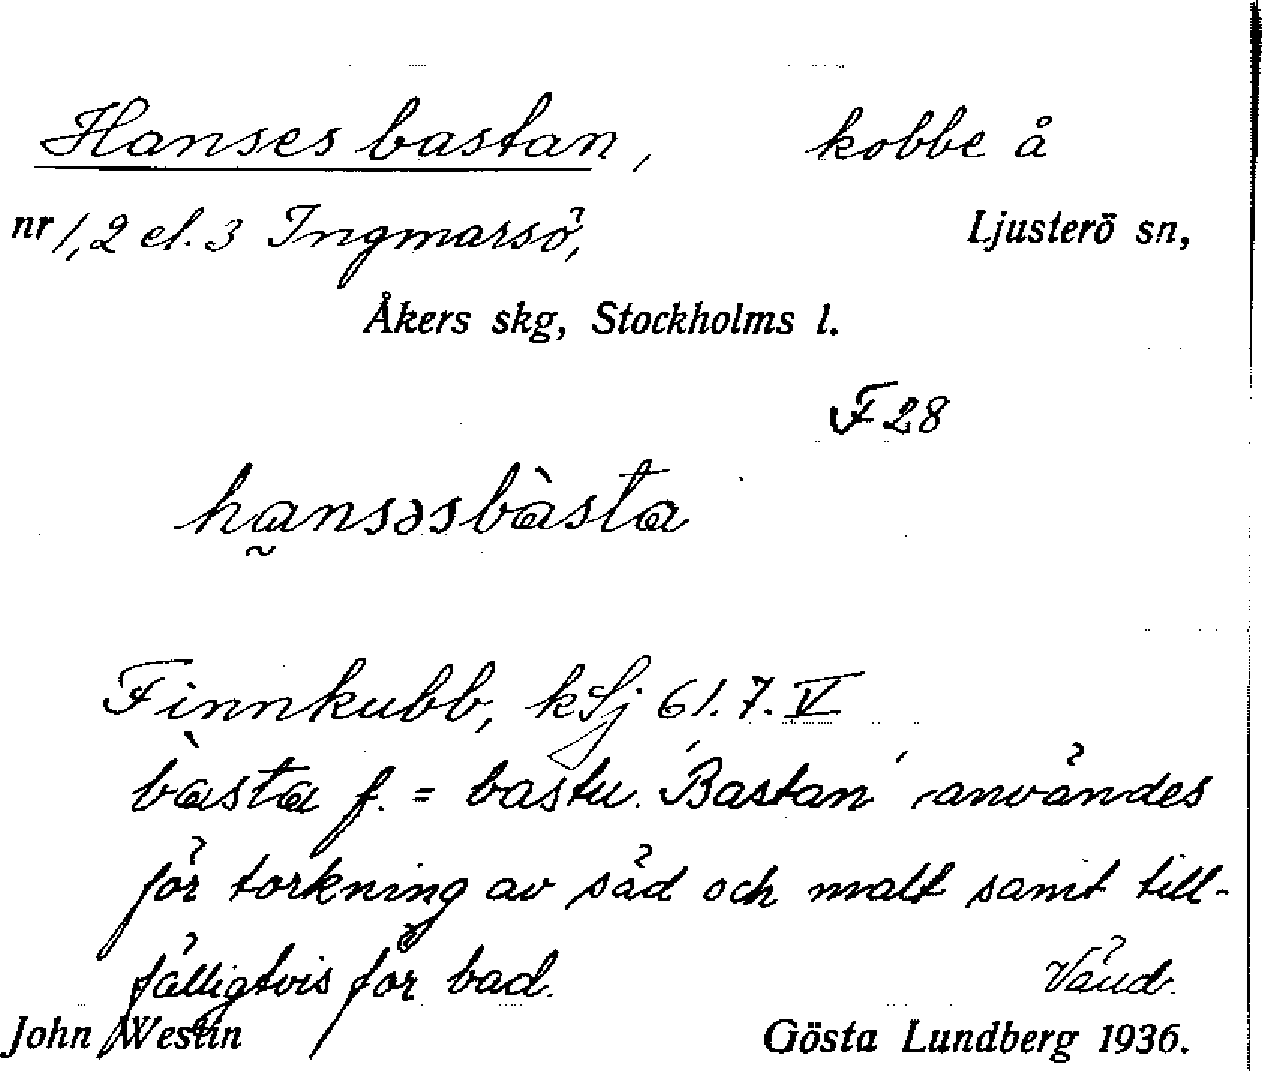 Hanses bastan, kobbe å
nr 1, 2 el. 3 Ingmarsö, Ljusterö sn,
Åkers skg, Stockholms l.
F 28
hansəsbàsta
Finnkubb, kSj 61.7.V
bàsta f. = bastu. 'Bastan' användes
för torkning av säd och malt samt till-
fälligtvis för bad. Vänd.
John Westin Gösta Lundberg 1936.